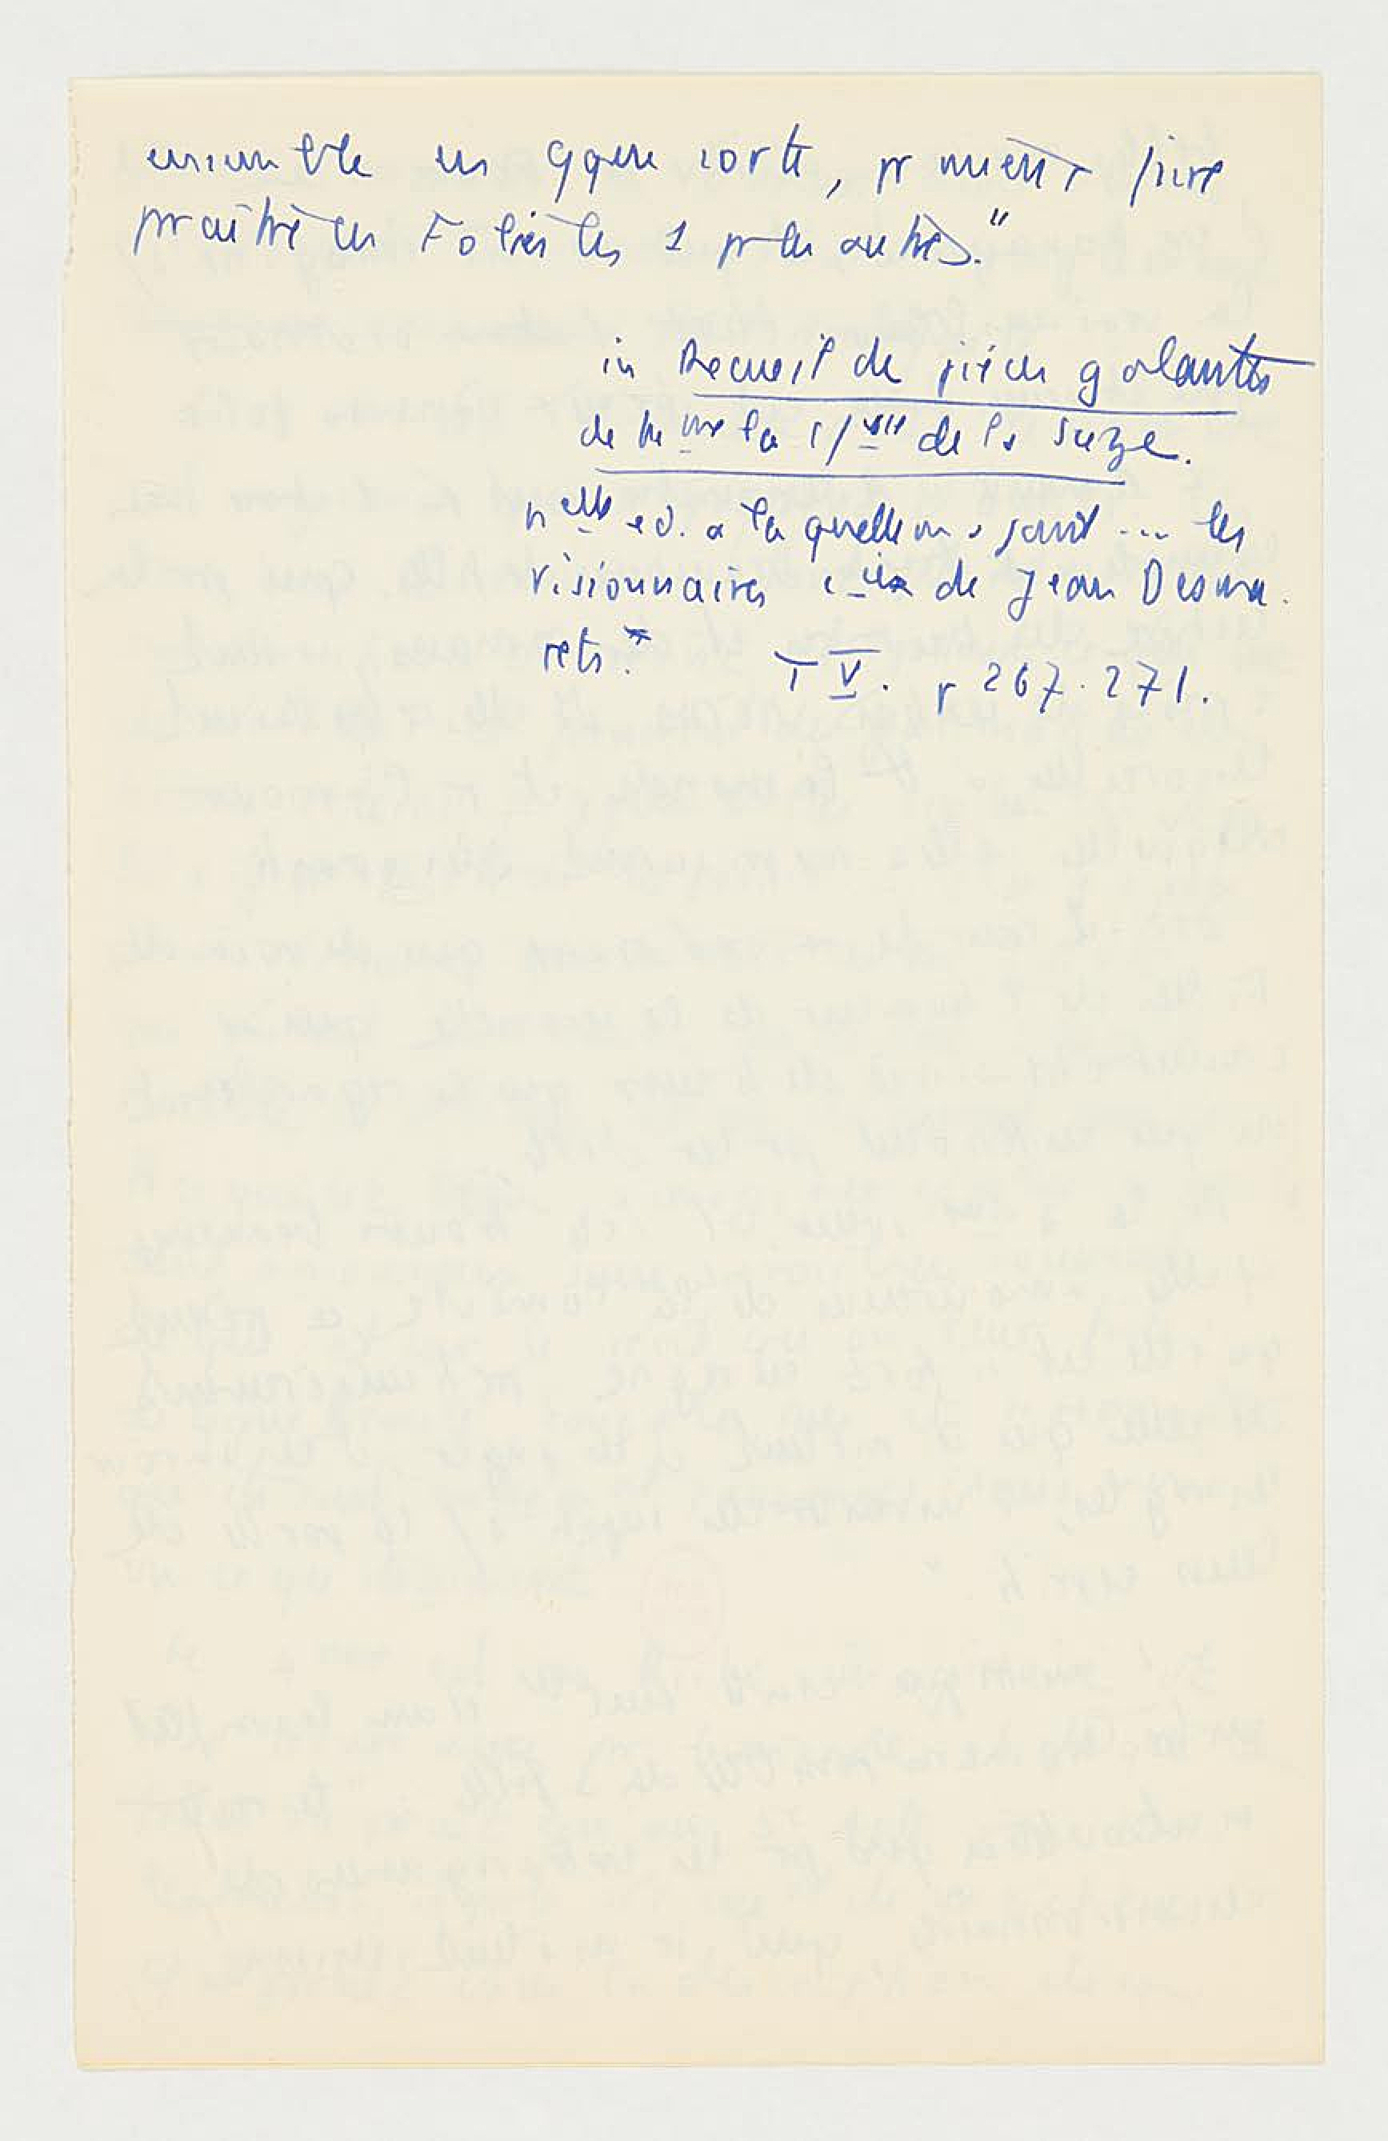 ensemble en qque sorte, pr mieux faire
praître les Folies les 1 pr les autres."
in Recueil de pièces galantes
de Mme la Ctesse de la Suze.
nelle ed. a laquelle on a joint ... les
visionnaires cie de Jean Desma-
rets.*
T V. p 267.271.